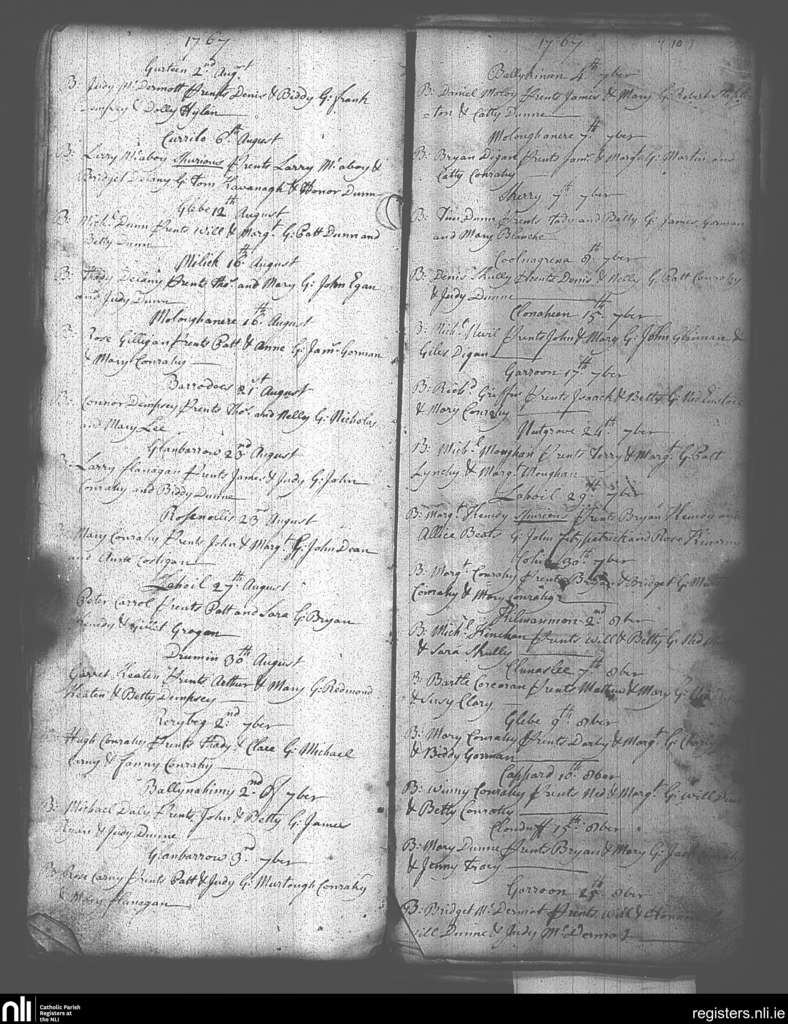 1767
Gurteen 2nd Augt
B: Judy McDermott Prents Denis & Biddy G: frank
Dempsey & Dolly Hylan
Currilo 6th August
B: Larry McAboy Spurious Prents Larry McAboy &
Bridget Delany G: Tom Kavanagh & Honor Dunn
Glebe 12th August
B: Michl Dunn Prents Will & Margt G: Patt Dunn and
Betty Dunne
Milick 16th August
B: Thady Delany Prents Thos and Mary G: John Egan
and Judy Dunne
Moloughanere 16th August
B: Rose Gilligan Prents Patt & Anne G: Jams Gorman
& Mary Conrahy
Barrodoes 21st August
B: Connor Dempsey Prents Thos and Nelly G: Nicholas
and Mary Lee
Glanbarrow 23rd August
B: Larry flanagan Prents James & Judy G: John
Conrahy and Biddy Dunne
Rosenollis 23rd August
B: Mary Conrahy Prents John & Margt G: John Dean
and Anne Costigan
Laboil 27th August
Peter Carrol Prents Patt and Sara G: Bryan
Hendy & Grogan
Drumin 30th August
Garret Keaten Prents Arthur & Mary G: Redmond
Keaten & Betty Dempsey
Rerybeg 2nd 7ber
Hugh Conrahy Prents Thady & Clare G: Michael
& fanny Conrahy
Ballynahimy 2nd of 7ber
B: Michael Daly Prents John & Betty G: James
Ryan & Judy Dunne
Glanbarrow 3rd 7ber
B: Rose Carny Prents Patt & Judy G: Murtough Conrahy
& Mary flanagan
1767 (10)
Ballyhinan 4th 7ber
B: Daniel Moloy Prents James & Mary G: Robert
=ton & Catty Dunne
Moloughanere 7th 7ber
B: Bryan Digan Prents Jams & Margt G: Martin and
Catty Conrahy
Sherry 7th 7ber
B: Tim Dunn Prents Tady and Betty G: James Gorman
and Mary Blanche
Coolnagrena 8th 7ber
B: Denis Skully Prents Denis & Nelly G: Patt Conrahy
& Judy Dunne
Clonaheen 15th 7ber
B: Michl Nevil Prents John & Mary G: John Glinnan &
Giles Digan
Garroon 17th 7ber
B: Richd Griffin Prents Isaack & Betty G:
& Mary Conrahy
Nutgrove 24th 7ber
B: Michl Moughan Prents Terry & Margt G: Patt
Lynchy & Margt Moughan
Laboil 29th 7ber
B: Margt Hendy Spurious Prents Bryan Hendy and
Allice Beats G: John fitzpatrick and Rose
30th 7ber
B: Margt Conrahy Prents & Bridget G:
Conrahy & Mary Conrahy
2nd 8ber
B: Michl Hinchan Prents Will & Betty G:
& Sara Skully
Clunaslee 7th 8ber
B: Bartle Corcoran Prents Mattw & Mary G:
& Susy Clory
Glebe 9th 8ber
B: Mary Conrahy Prents Darby & Margt G:
& Biddy Gorman
Cappard 10th 8ber
B: Winny Conrahy Prents Ned & Margt G: Will
& Betty Conrahy
Clonduff 15th 8ber
B: Mary Dunne Prents Bryan & Mary G:
& Jenny Tracy
Garroon 25th 8ber
B: Bridget McDermot Prents Will &
Will Dunne & Judy McDermot
nli Catholic Parish
Registers at
the NLI
registers.nli.ie